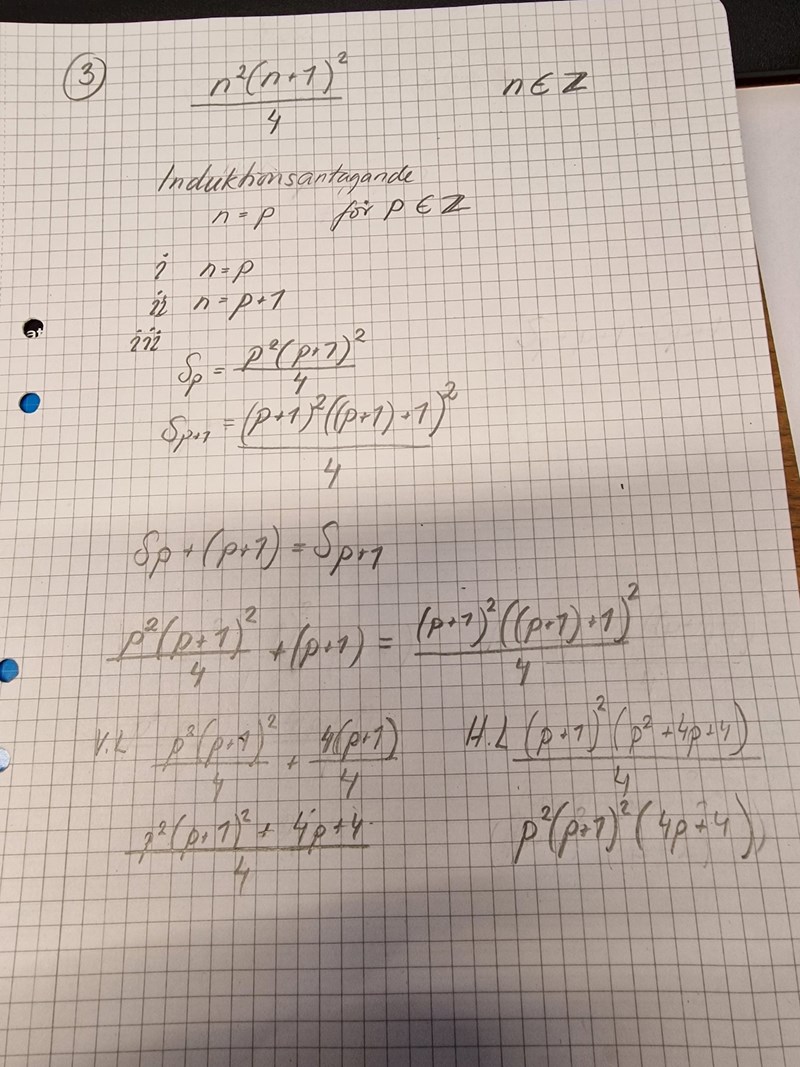 ③ n²(n+1)² / 4 n∈Z
Induktionsantagande
n=p för p∈Z
i n=p
ii n=p+1
iii
Sp = p²(p+1)² / 4
Sp+1 = (p+1)²((p+1)+1)² / 4
Sp+(p+1)=Sp+1
p²(p+1)² / 4 +(p+1) = (p+1)²((p+1)+1)² / 4
V.L p²(p+1)² / 4 + 4(p+1) / 4 H.L (p+1)²(p²+4p+4) / 4
p²(p+1)²+ 4p+4 / 4 p²(p+1)²(4p+4)